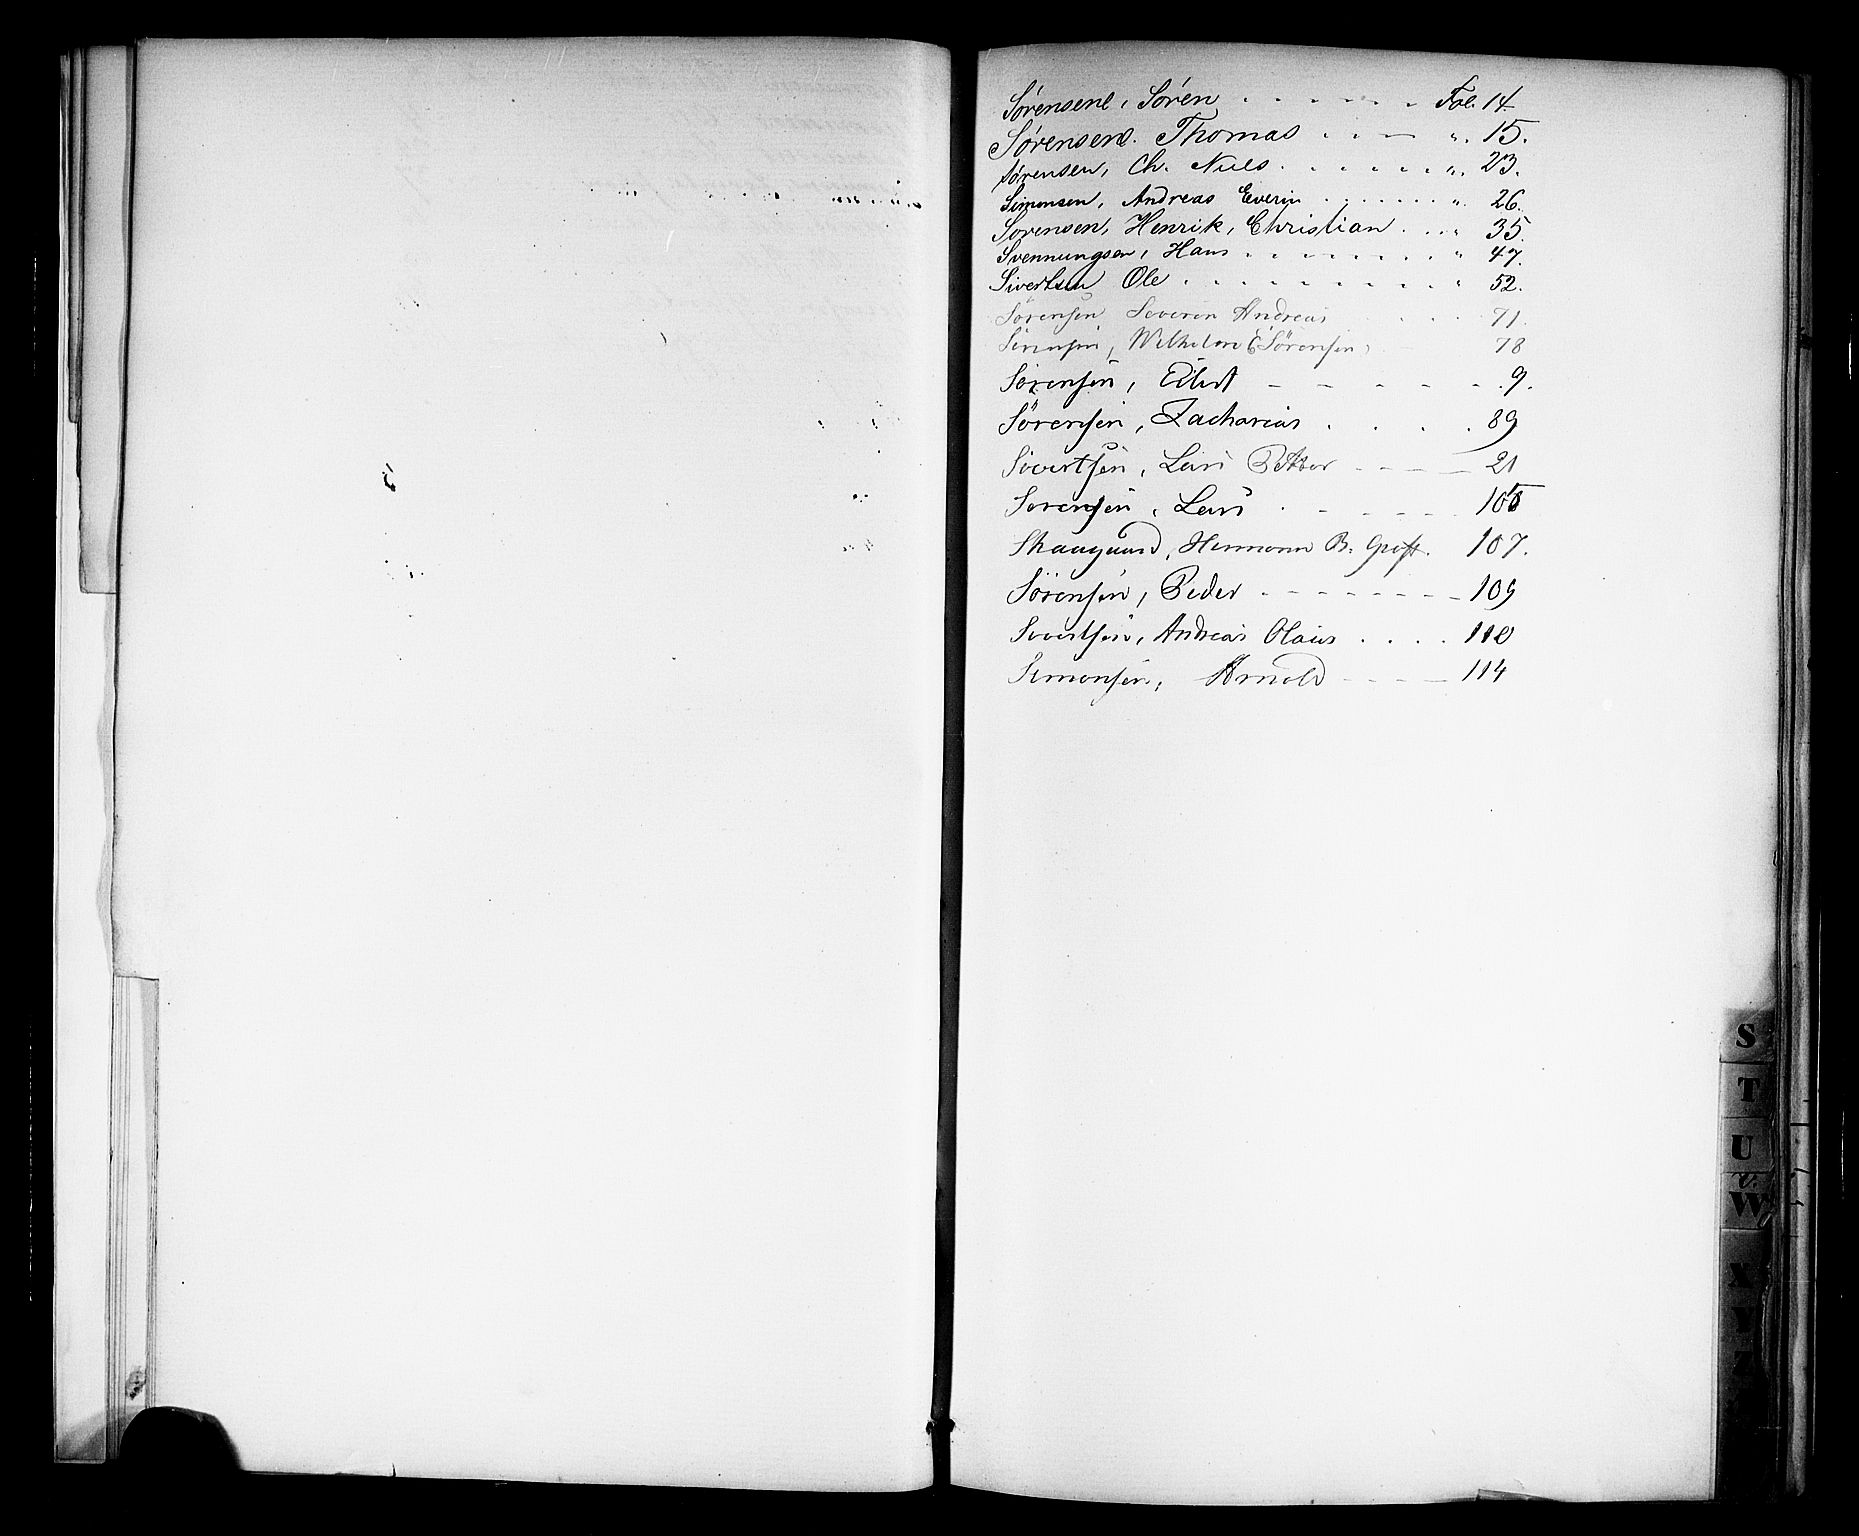 Sørensen, Søren . . . . . . Fol. 14
Sørensen. Thomas . . . — ". 15.
Sørensen, Ch. Niels . . . . . . . ". 23.
Simonsen, Andreas Everin . . . . . . . ". 26.
Sorensen, Henrik, Christian . . . " 35.
Svennungsen, Hans . . . . . . . . " 47.
Sivertsen Ole . . . . . . . . . . " 52.
Sörensen Severin Andreas . . . . 71.
Simensen, Wilhelm (Sörensen) 78
Sörensen, Edlest - - - - - - . 9.
Sörensen, Zacharias . . . . 89
Sivertsen, Lars Petter - - - — 21
Sorensen, Lars . - - - - - 105
Skaugaard, Hermann B. Groft. 107.
Sörensen, Peder - - - - - - - - - 109
Sivertsen, Andreas Olaus . . . . 110
Simonsen, Arnold - - - - — 114
S
T
U
V.
W
X
Y
Z